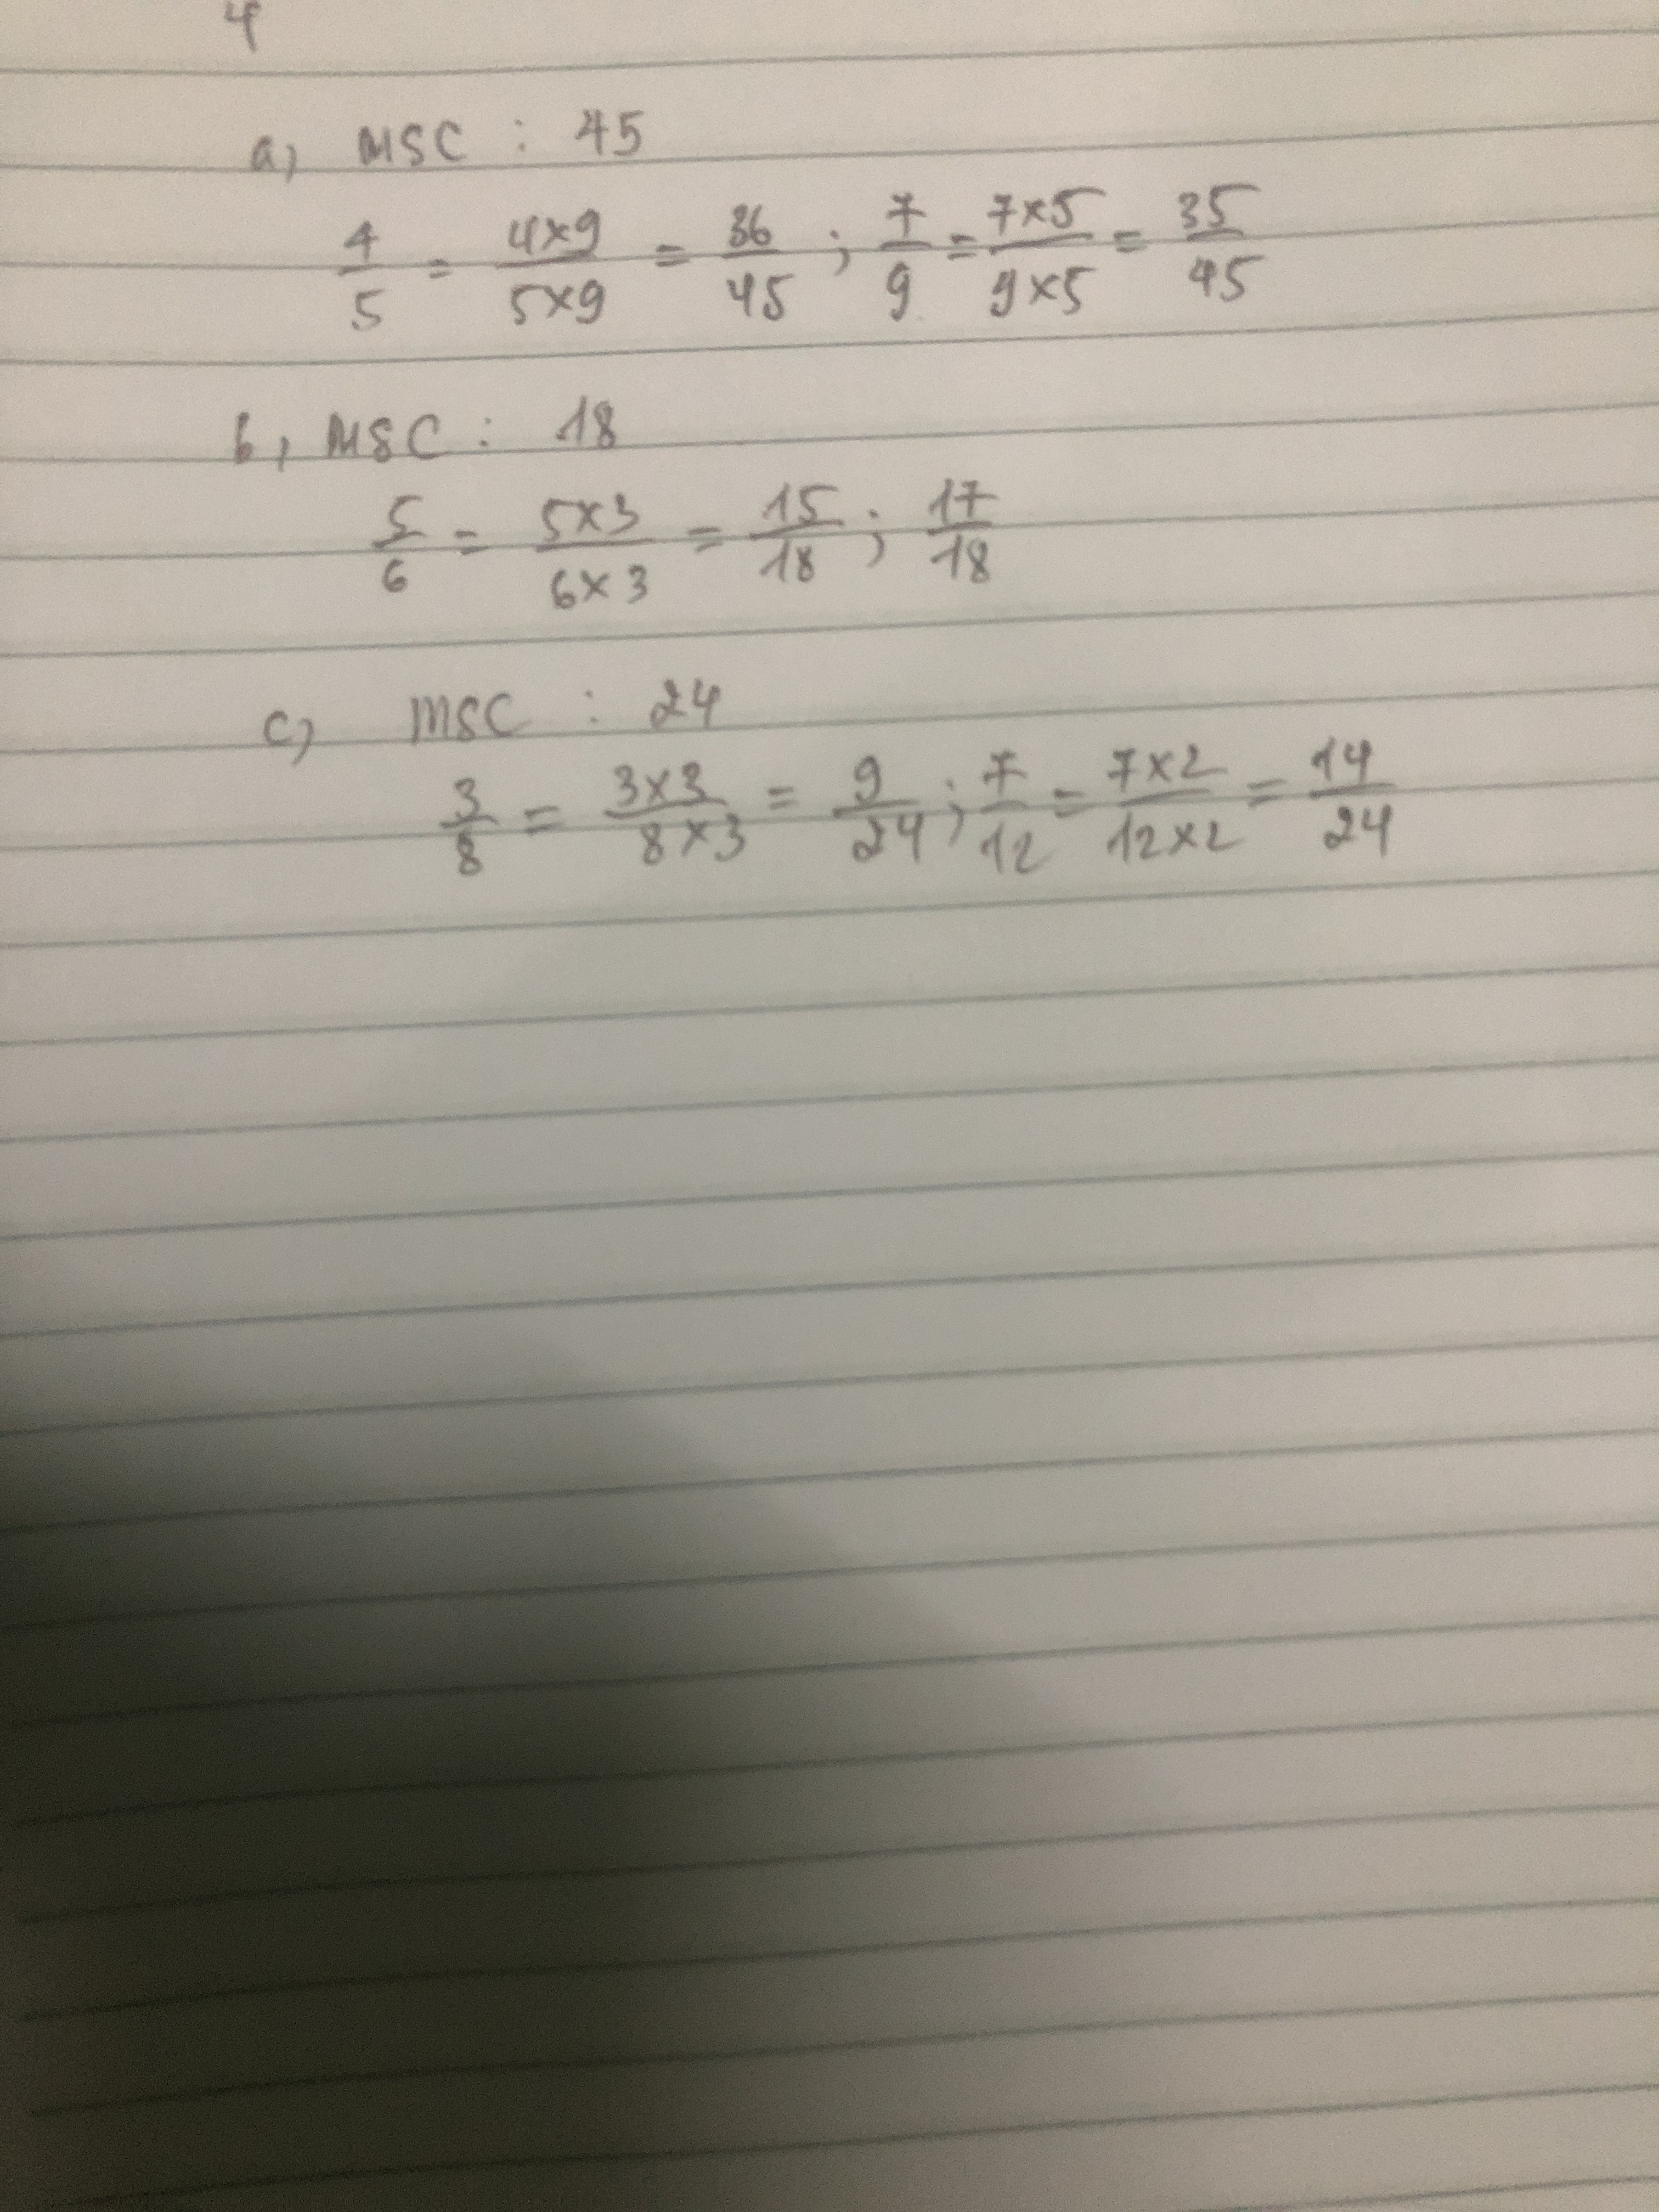 4
a, MSC : 45
4/5 = 4×9/5×9 = 36/45 ; 7/9 = 7×5/9×5 = 35/45
b, MSC : 18
5/6 = 5×3/6×3 = 15/18 ; 17/18
c, MSC : 24
3/8 = 3×3/8×3 = 9/24 ; 7/12 = 7×2/12×2 = 14/24